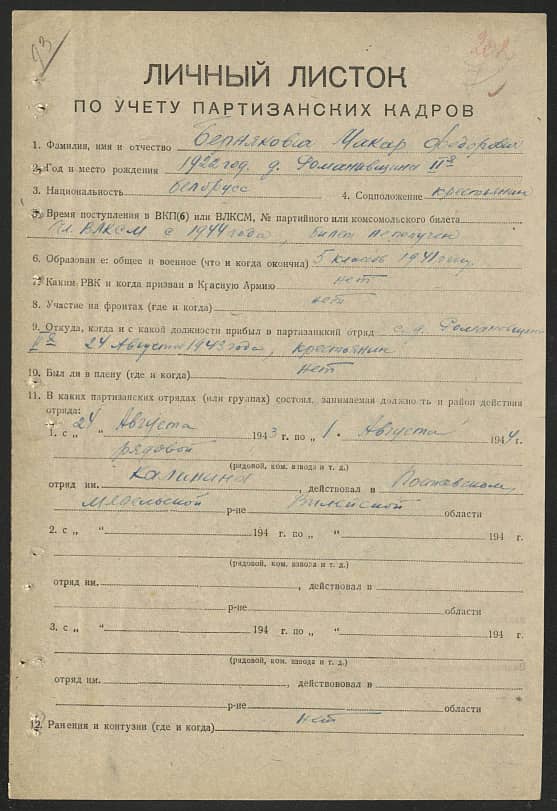 93
ЛИЧНЫЙ ЛИСТОК
ПО УЧЕТУ ПАРТИЗАНСКИХ КАДРОВ
1. Фамилия, имя и отчество Макар Федорович
2. Год и место рождения 1922 год. д. Романовщина II я
3. Национальность белорусс 4. Соцположение крестьянин
5. Время поступления в ВКП(б) или ВЛКСМ, № партийного или комсомольского билета
чл. ВЛКСМ с 1944 года, билет не получен
6. Образован е: общее и военное (что и когда окончил) 5 классов 1941 году
7. Каким РВК и когда призван в Красную Армию нет
8. Участие на фронтах (где и когда) нет
9. Откуда, когда и с какой должности прибыл в партизанкий отряд с д. Романовщина
II я 24 Августа 1943 года, крестьянин
10. Был ли в плену (где и когда) нет
11. В каких партизанских отрядах (или группах) состоял, занимаемая должность и район действия
отряда:
1. с „ 24 “ Августа 1943 г. по „ 1 “ Августа 1944 г.
рядовой
(рядовой, ком. взвода и т. д.)
отряд им. Калинина, действовал в Поставском,
Мядельской р-не Вилейской области
2. с „ “ 194 г. по „ “ 194 г.
(рядовой, ком. взвода и т. д.)
отряд им. , действовал в
р-не области
3. с „ “ 194 г. по „ “ 194 г.
(рядовой, ком. взвода и т. д.)
отряд им. , действовал в
р-не области
12. Ранения и контузии (где и когда) нет